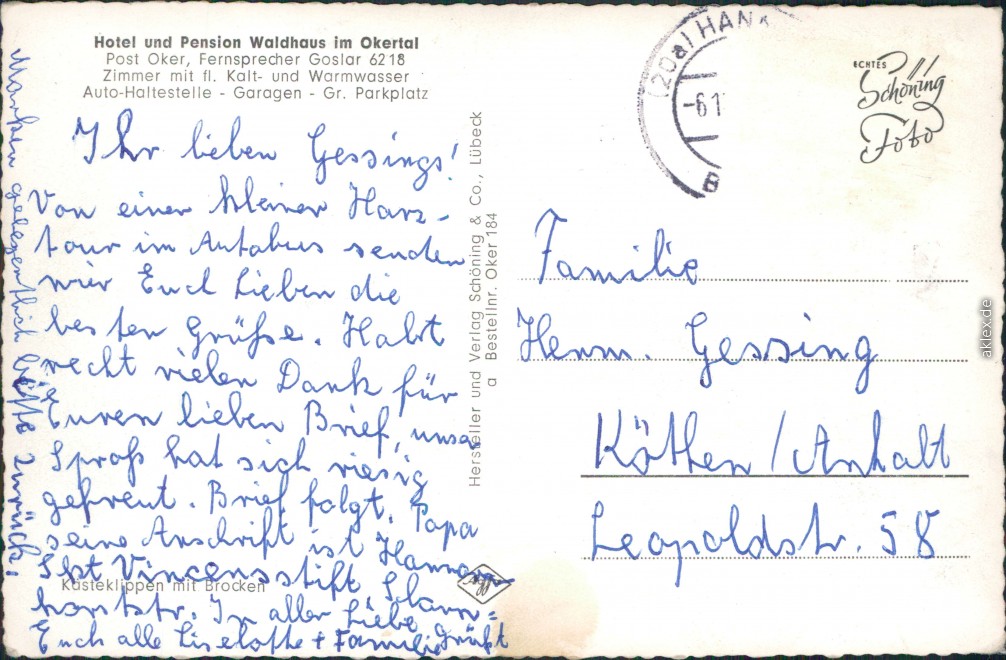 Hotel und Pension Waldhaus im Okertal
Post Oker, Fernsprecher Goslar 6218
Zimmer mit fl. Kalt- und Warmwasser
Auto-Haltestelle - Garagen - Gr. Parkplatz
Ihr lieben Gessings!
Von einer kleinen Harz-
tour im Autobus senden
wir Euch Lieben die
besten Grüße. Habt
recht vielen Dank für
Euren lieben Brief, unser
Sproß hat sich riesig
gefreut. Brief folgt. Papa
seine Anschrift ist Hannover
Skt Vincensstift Scharn=
horststr. In aller Liebe grüßt
Euch alle Liselotte + Familie
Marken gelegentlich bitte zurück!
Kästeklippen mit Brocken
Hersteller und Verlag Schöning & Co., Lübeck
a Bestellnr. Oker 184
(20a) HAN
-6.1
B
ECHTES
Schöning
Foto
Familie
Herm. Gessing
Köthen / Anhalt
Leopoldstr. 58
aklex.de